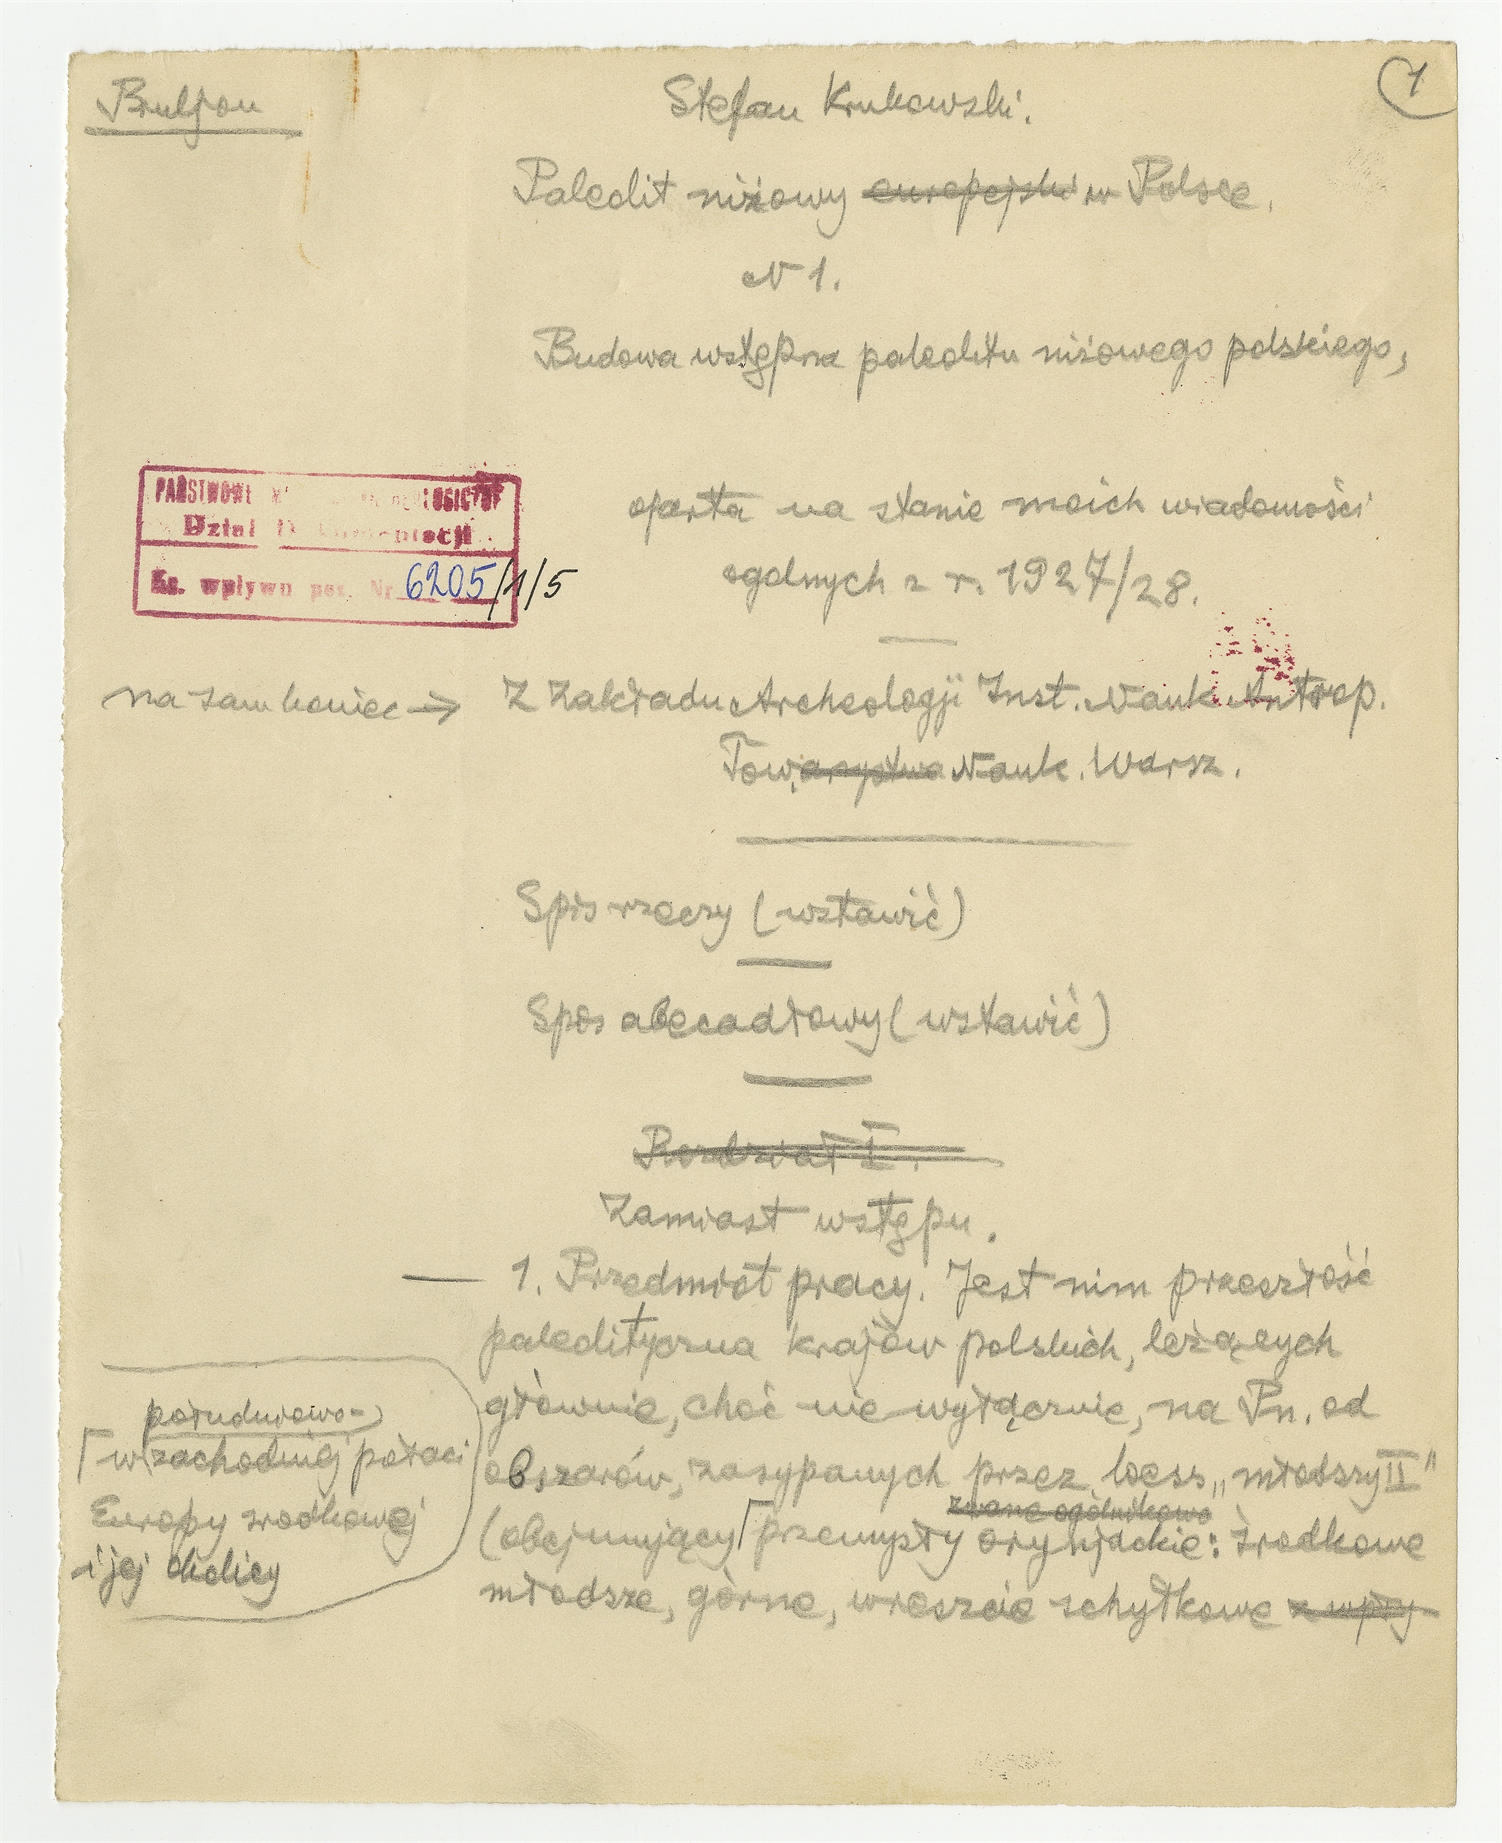 1
Bruljon
Stefan Krukowski.
Paleolit niżowy europejski w Polsce.
N 1.
Budowa wstępna paleolitu niżowego polskiego,
oparta na stanie moich wiadomości
ogólnych z r. 1927/28.
PAŃSTWOWE
Dział
Ks. wpływu poz. Nr 6205/1/5
na sam koniec → Z Zakładu Archeologji Inst. Nauk Antrop.
Towarzystwa Nauk. Warsz.
Spis rzeczy (wstawić)
Spis abecadłowy (wstawić)
Rozdział I.
Zamiast wstępu.
— 1. Przedmiot pracy. Jest nim przeszłość
paleolityczna krajów polskich, leżących
głównie, choć nie wyłącznie, na Pn. od
obszarów, zasypanych przez loess „młodszy II"
zwane ogólnikowo
(obejmujący Γ przemysły oryniackie: środkowe
młodsze, górne, wreszcie schyłkowe z wpły
południowo-
Γ w zachodniej połaci
Europy środkowej
i jej okolicy